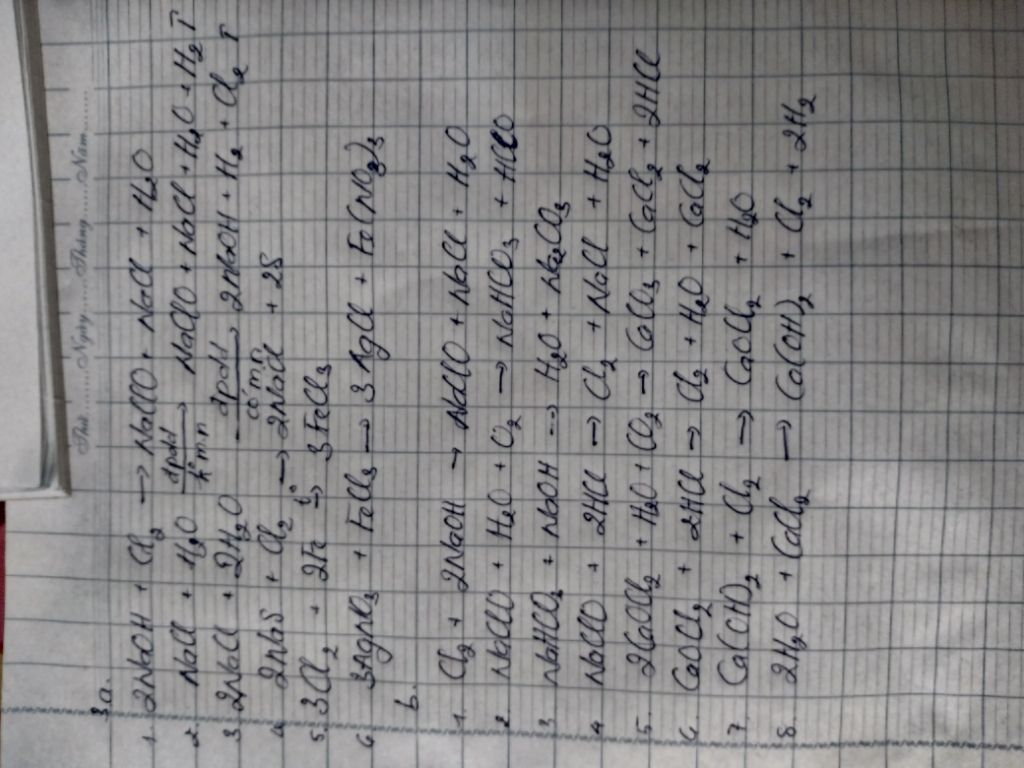 Thứ......... Ngày.........Tháng.........Năm.........
3a.
1. 2NaOH + Cl2 → NaClO + NaCl + H2O
2. NaCl + H2O đpdd k m n → NaClO + NaCl + H2O + H2↑
3. 2NaCl + 2H2O đpdd có m n → 2NaOH + H2 + Cl2↑
4. 2NaS + Cl2 → 2NaCl + 2S
5. 3Cl2 + 2Fe t° → 3FeCl3
6 3AgNO3 + FeCl3 → 3AgCl + Fe(NO3)3
b.
1. Cl2 + 2NaOH → NaClO + NaCl + H2O
2 NaClO + H2O + O2 → NaHCO3 + HClO
3 NaHCO3 + NaOH → H2O + Na2CO3
4 NaClO + 2HCl → Cl2 + NaCl + H2O
5. 2CaOCl2 + H2O + CO2 → CaCO3 + CaCl2 + 2HCl
6. CaOCl2 + 2HCl → Cl2 + H2O + CaCl2
7. Ca(OH)2 + Cl2 → CaOCl2 + H2O
8. 2H2O + CaCl2 → Ca(OH)2 + Cl2 + 2H2